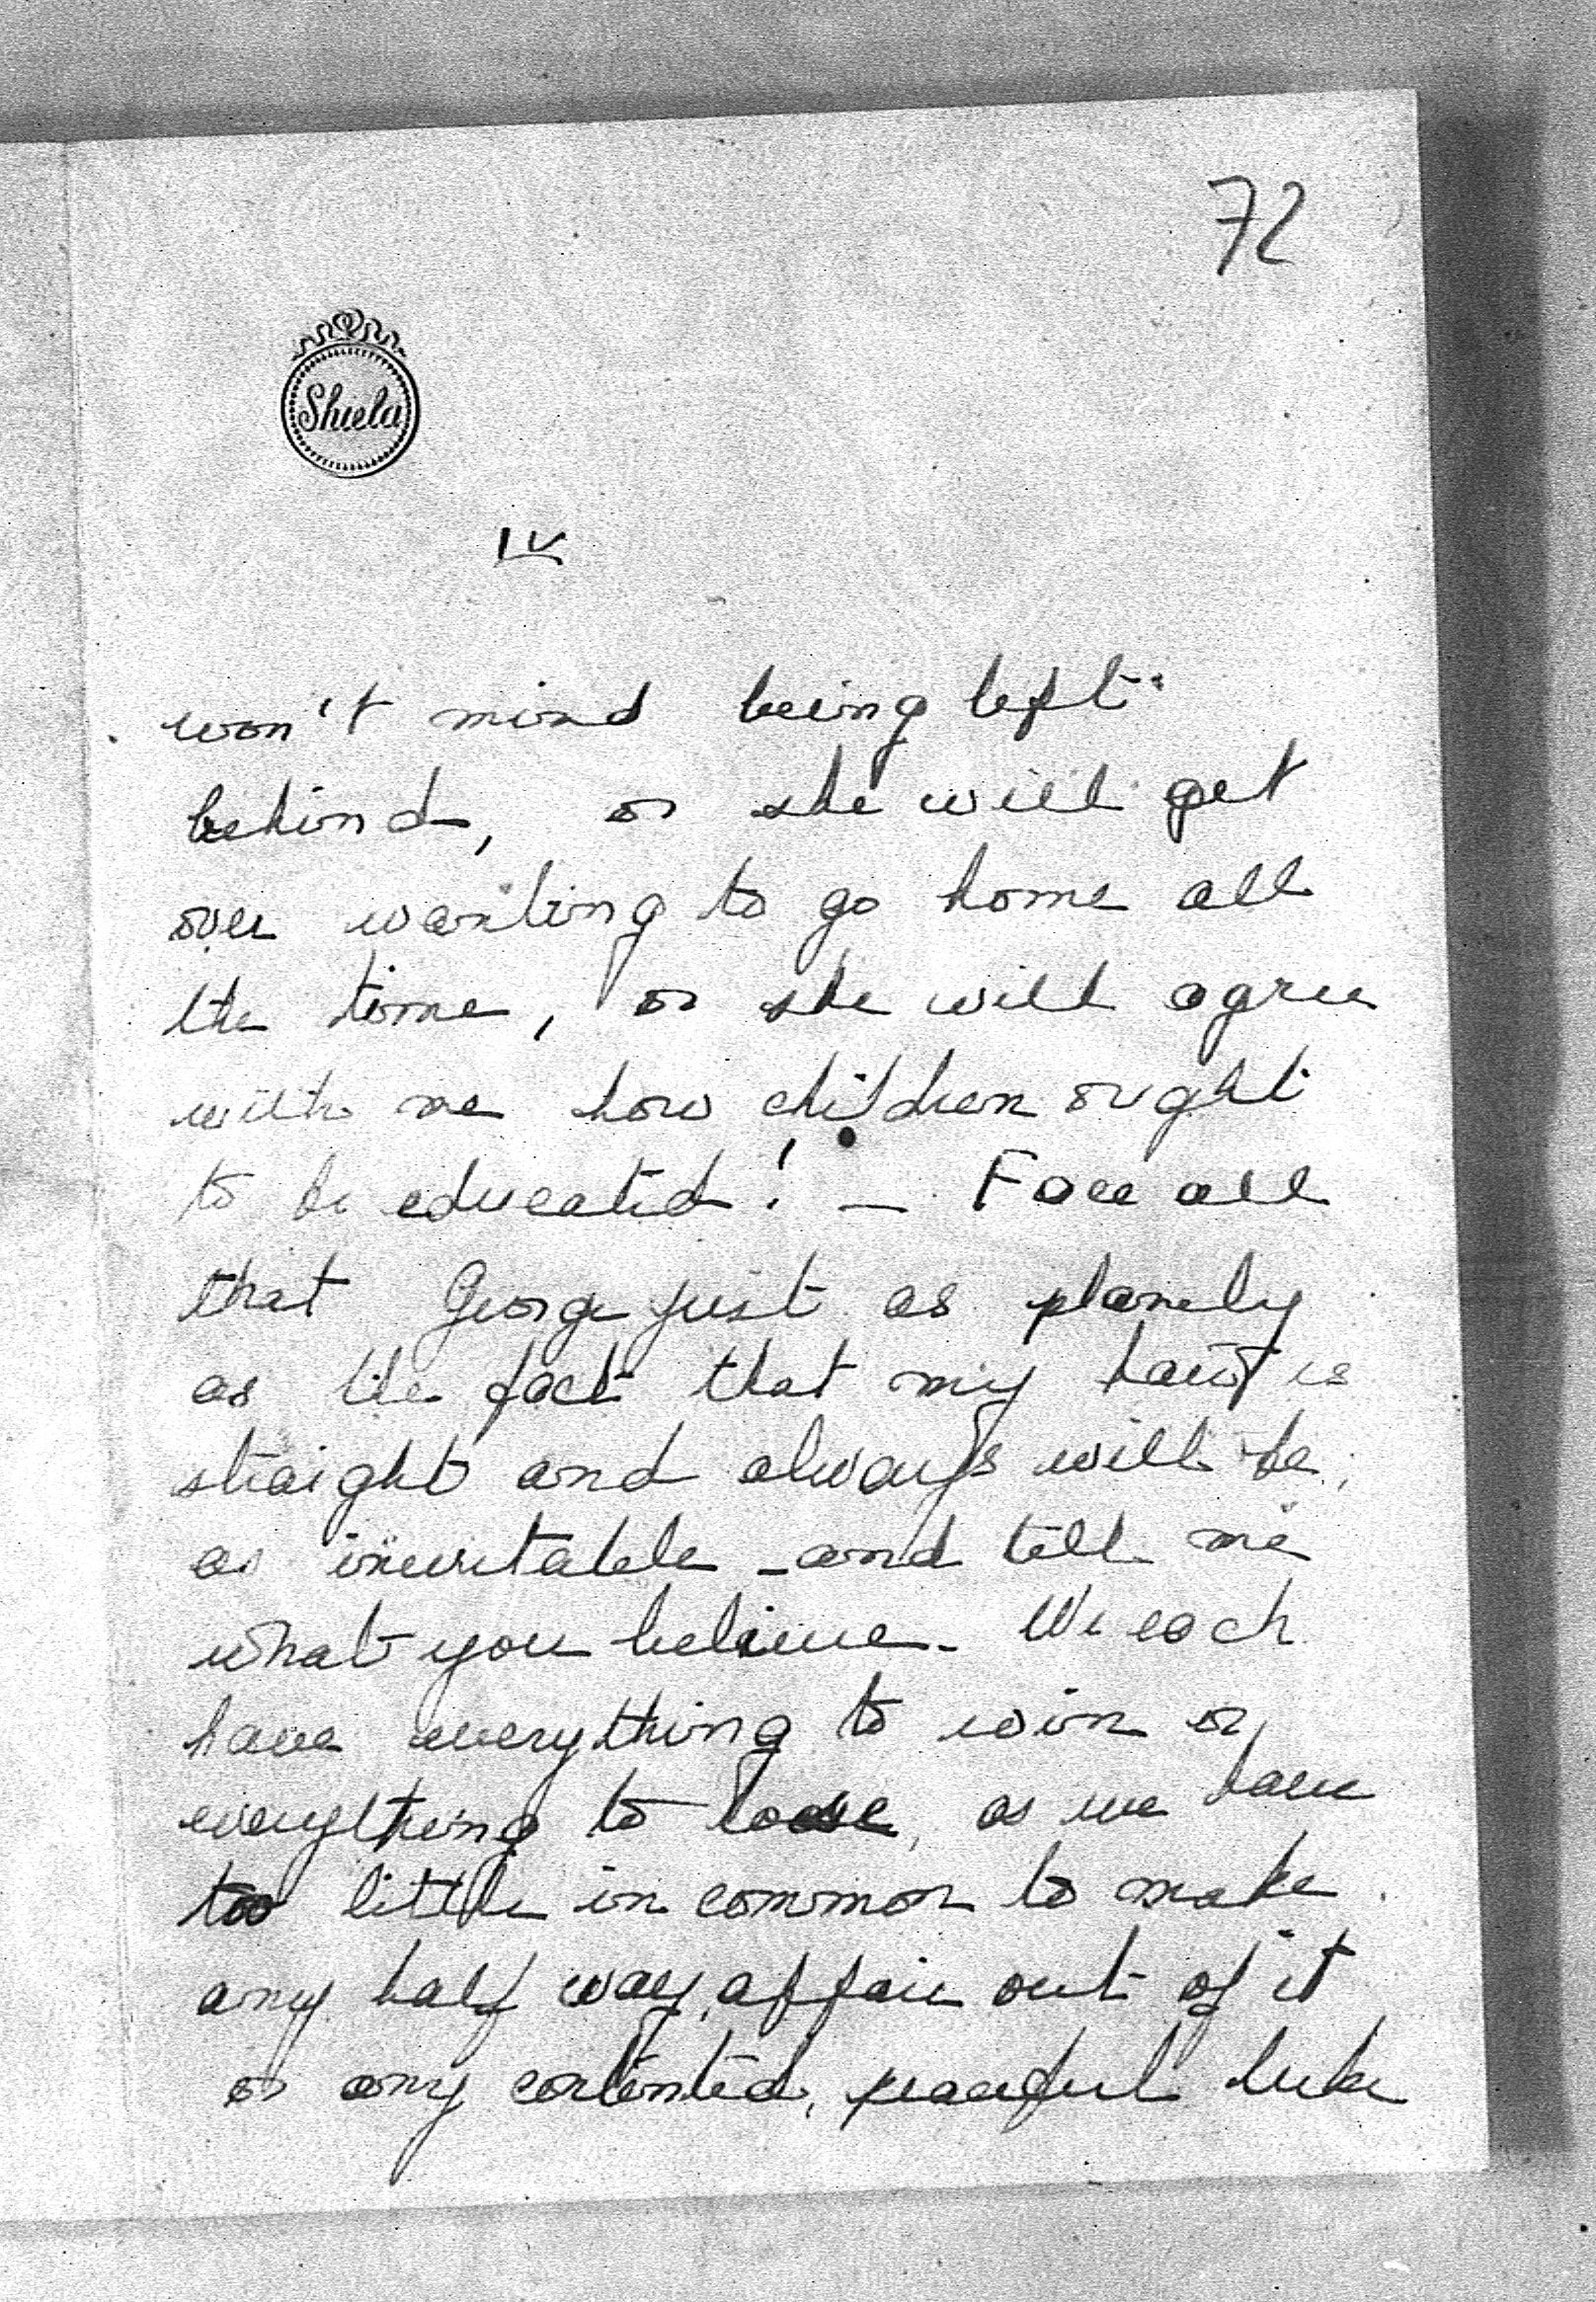 72
Shiela
IV
won't mind being left
behind, or she will get
over wanting to go home all
the time, or she will agree
with me how children ought
to be educated! — Face all
that George just as planely
as the fact that my hair is
straight and always will be,
as inevitable - and tell me
what you believe - We each
have everything to win or
everything to loose, as we have
too little in common to make
any half way affair out of it
or any contented, peaceful luke